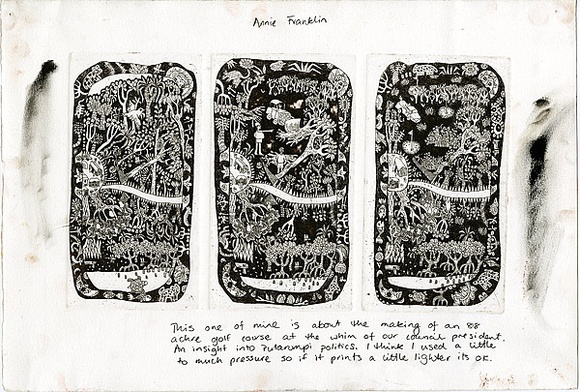 Annie Franklin
This one of mine is about the making of an 88
achre golf course at the whim of our council president.
An insight into Pularumpi politics. I think I used a little
to much pressure so if it prints a little lighter its OK.